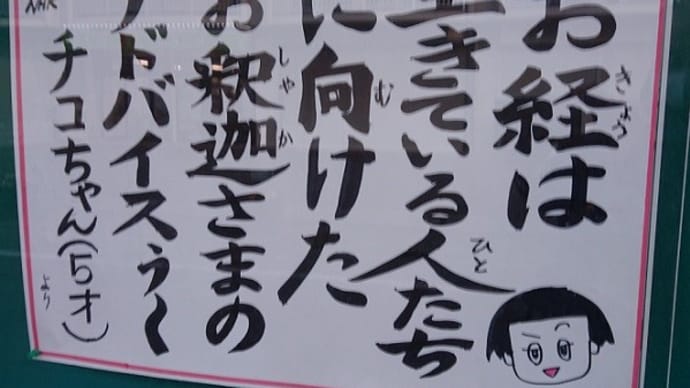 お経は
生きている人たち
に向けた
お釈迦さまの
アドバイスぅ〜
NHK チコちゃん(5才)より
きょう
ひと
む
しゃか